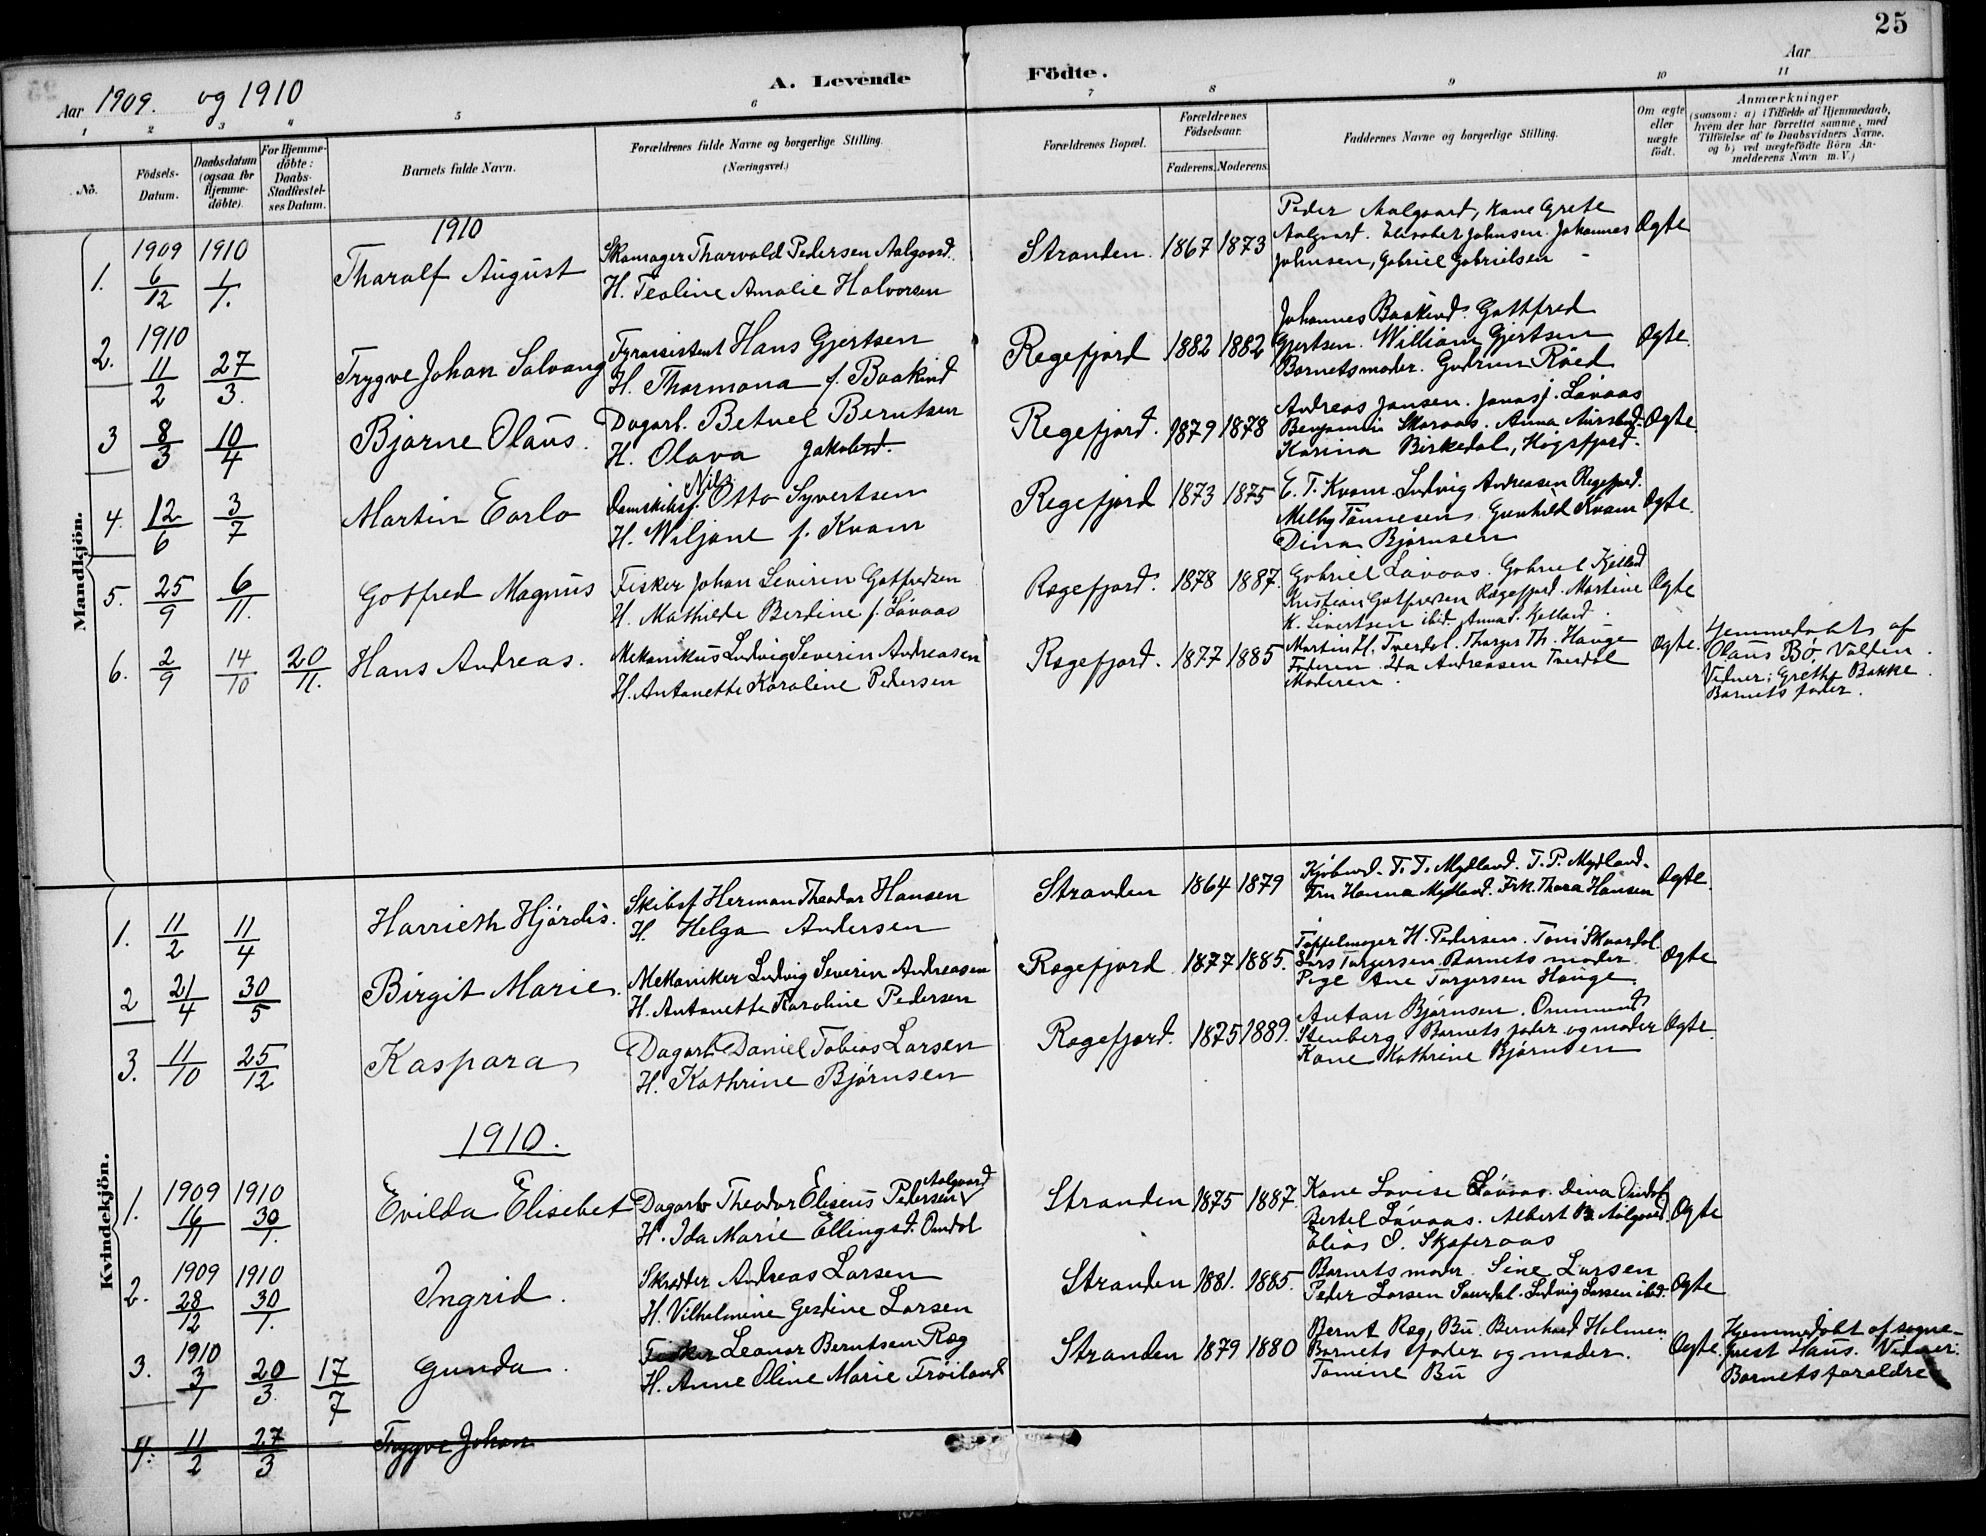 25
Aar 1909. og 1910
A. Levende Födte.
Aar
1 2 3 4 5 6 7 8 9 10 11
No.
Födsels-Datum.
Daabsdatum (ogsaa for Hjemme-döbte).
For Hjemme-döbte: Daabs-Stadfæstel-ses Datum.
Barnets fulde Navn.
Forældrenes fulde Navne og borgerlige Stilling.
(Næringsvei.)
Forældrenes Bopæl.
Forældrenes Födselsaar.
Faderens. Moderens.
Faddernes Navne og borgerlige Stilling.
Om ægte eller uægte födt.
Anmærkninger
(saasom: a) i Tilfælde af Hjemmedaab, hvem der har forrettet samme, med Tilföielse af to Daabsvidners Navne, og b) ved uægtefödte Börn Anmelderens Navn m. V.)
Mandkjön.
1910
1. 1909 6/12 1910 1/1. Tharalf August
Skomager Thorvald Pedersen Aalgaard.
H. Teoline Amalie Halvorsen
Stranden. 1867 1873
Peder Aalgaard, Kone Grete
Aalgaard. Elisabet Johnsen. Johannes
Johnsen, Gabriel Gabrielsen -
Ægte
2. 1910 11/2 27/3. Trygve Johan Salvang
Fyrassistent Hans Gjertsen
H. Thormona f. Baakind
Regefjord 1882 1882
Johannes Baakind. Gottfred
Gjertsen. William Gjertsen
Barnets moder. Gudrun Röed
Ægte.
3 8/3 10/4 Bjarne Olaus.
Dagarb. Betuel Berntsen
H. Olava Jakobsd.
Regefjord. 1879 1878
Andreas Jansen. Jonas J. Lavaas
Benjamin Skaraas. Anna
Karina Birkedal, Högsfjord.
Ægte
4. 12/6 3/7 Martin Earlo
Damskibsf. Nils Otto Syvertsen
H. Wiljane f. Kvam
Regefjord 1873 1875
E. T. Kvam. Ludvig Andreasen Regefjord.
Melby Tönnesen. Gunhild Kvam
Dina Bjørnsen
Ægte.
5. 25/9 6/11. Gotfred Magnus
Fisker Johan Severin Gotfredsen
H. Mathilde Berdine f. Lavaas
Rægefjord. 1878 1887.
Gabriel Lavaas. Gabriel Kjelland
Kristian Gotfredsen Rægefjord. Martine
K. Sivertsen ibid. Anna S. Kjelland.
Ægte
6. 2/9 14/10 20/11. Hans Andreas.
Mekanikus Ludvig Severin Andreasen
H. Antonette Karoline Pedersen
Rægefjord. 1877 1885
Martin H. Tverdal. Tharger Th. Hauge
Faderen. Ida Andreasen Tverdal
Moderen.
Ægte.
Hjemmedöbt af
Olaus Bö,
Vidner: Grethe Bakke
Barnets fader.
Kvindekjön.
1. 11/2 11/4 Harrieth Hjördis.
Skibsf Herman Theodor Hansen
H. Helga Andersen
Stranden 1864 1879
Kjöbmd. T. T. Mydland. T. P. Mydland.
Fru Hanna Mydland. Frk. Thora Hansen
Ægte.
2 21/4 30/5 Birgit Marie.
Mekaniker Ludvig Severin Andreasen
H. Antonette Karoline Pedersen
Rægefjord 1877 1885.
Töffelmager H. Pedersen. Toni Skaardal.
Lars Torgersen. Barnets moder.
Pige Ane Torgersen Hauge.
Ægte
3. 11/10 25/12 Kaspara
Dagarb Daniel Tobias Larsen
H. Kathrine Bjørnsen
Rægefjord. 1875 1889.
Anton Bjørnsen. Ommund
Stenberg Barnets fader og moder
Kone Kathrine Bjørnsen
Ægte.
1910.
1. 1909 16/11 1910 30/1. Evilda Elisebet
Aalgaard
Dagarb Theodor Eliseus Pedersen
H. Ida Marie Ellingsd.
Stranden 1875 1887.
Kone Lovise Lövaas. Dina
Bertel Lövaas. Albert B. Aalgaard
Elias O. Skaferaas
Ægte
2. 1909 28/12 1910 30/1. Ingrid.
Skrædder Andreas Larsen
H. Vilhelmine Gesdine Larsen
Stranden 1881. 1885.
Barnets moder. Sine Larsen
Peder Larsen Saurdal. Ludvig Larsen ibd.
Ægte
3. 1910 3/1 20/3. 17/7 Gunda.
Fisker Leonar Berntsen Ræg
H. Anne Oline Marie Fröiland
Stranden 1879 1880
Bernt Ræg, Bu. Bernhard Holmen
Barnets fader og moder.
Tomine Bu
Ægte.
Hjemmedöbt af sogne-
prest Haus. Vidner:
Barnets forældre
4. 11/2 27/3 Trygve Johan